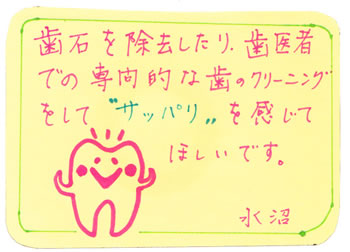 歯石を除去したり、歯医者
での専門的な歯のクリーニング
をして"サッパリ"を感じて
ほしいです。
水沼